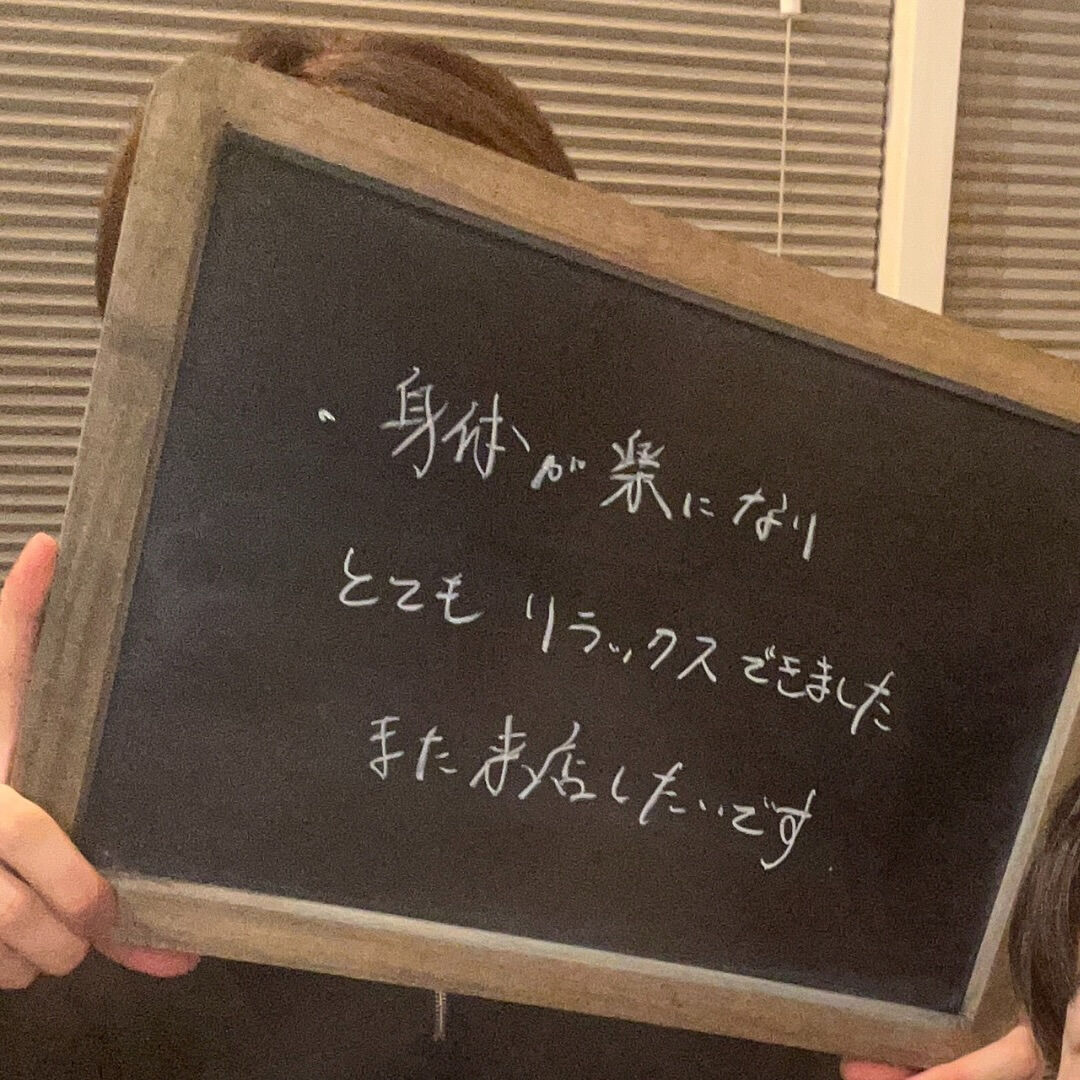 ・身体が楽になり
とても リラックスできました
また来店したいです